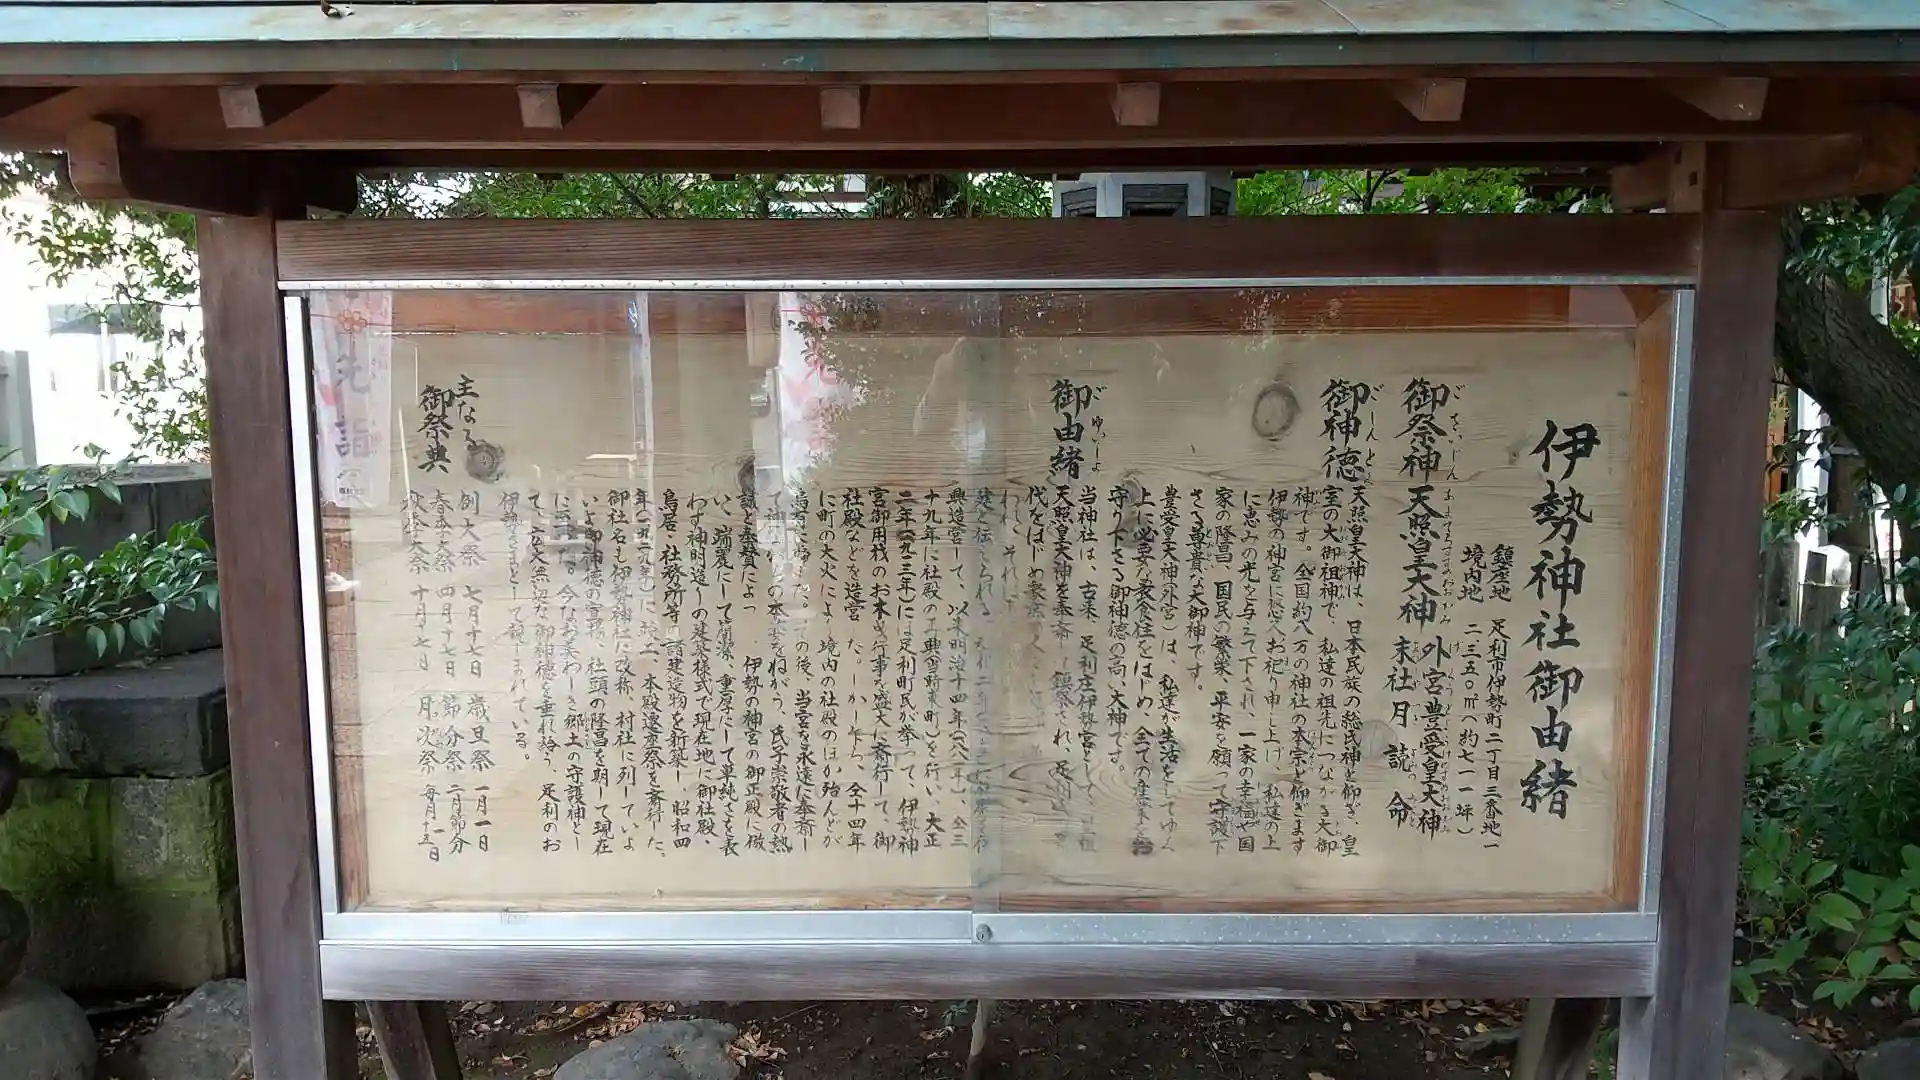 伊勢神社御由緒
鎮座地 足利市伊勢町二丁目三番地一
境内地 二三五〇㎡(約七一一坪)
御祭神 天照皇大神 外宮豊受皇大神
末社 月読命
御神徳
天照皇大神は、日本民族の総氏神と仰ぎ、皇
室の大御祖神で、私達の祖先につながる大御
神です。全国約八万の神社の本宗と仰ぎます
伊勢の神宮に 祀り申し上げ、私達の上
に恵みの光を与えて下され、一家の幸福や国
家の隆昌、国民の繁栄、平安を願って守護下
さる尊貴な大御神です。
豊受皇大神外宮 は、私達が生活をしてゆく
上に必要な衣食住をはじめ、全ての産業をお
守り下さる御神徳の高い大神です。
御由緒
当神社は、古来 足利庄伊勢宮として、
天照皇大神を奉斎し鎮祭され、足利
代をはじめ
われ、それ
建と伝えられる
興造宮して、以来明治十四年(一八八一年)、仝三
十九年に社殿の再興(当時東町)を行い、大正
二年(一九一三年)には足利町民が挙って、伊勢神
宮御用材のお木曳行事を盛大に斎行して、御
社殿などを造営した。しかし乍ら、仝十四年
に町の大火により境内の社殿のほか殆んどが
烏有に帰した。その後、当宮を永遠に奉斎し
て神 の本 をねがう、氏子崇敬者の熱
誠と奉賛によって、伊勢の神宮の御正殿に倣
い、端麗にして簡潔、重厚にして単純さを表
わす神明造りの建築様式で現在地に御社殿、
鳥居、社務所等の諸建造物を新築し、昭和四
年(一九二九年)に竣工、本殿遷座祭を斎行した。
御社名も伊勢神社に改称、村社に列していよ
いよ御神徳の宣揚、社頭の隆昌を期して現在
に至った。今なお美わしき郷土の守護神とし
て、広大無辺な御神徳を垂れ給う、足利のお
伊勢さまとして親しまれている。
主なる
御祭典
例大祭 七月十七日 歳旦祭 一月一日
春季大祭 四月十七日 節分祭 二月節分
秋季大祭 十月十七日 月次祭 毎月一日十五日